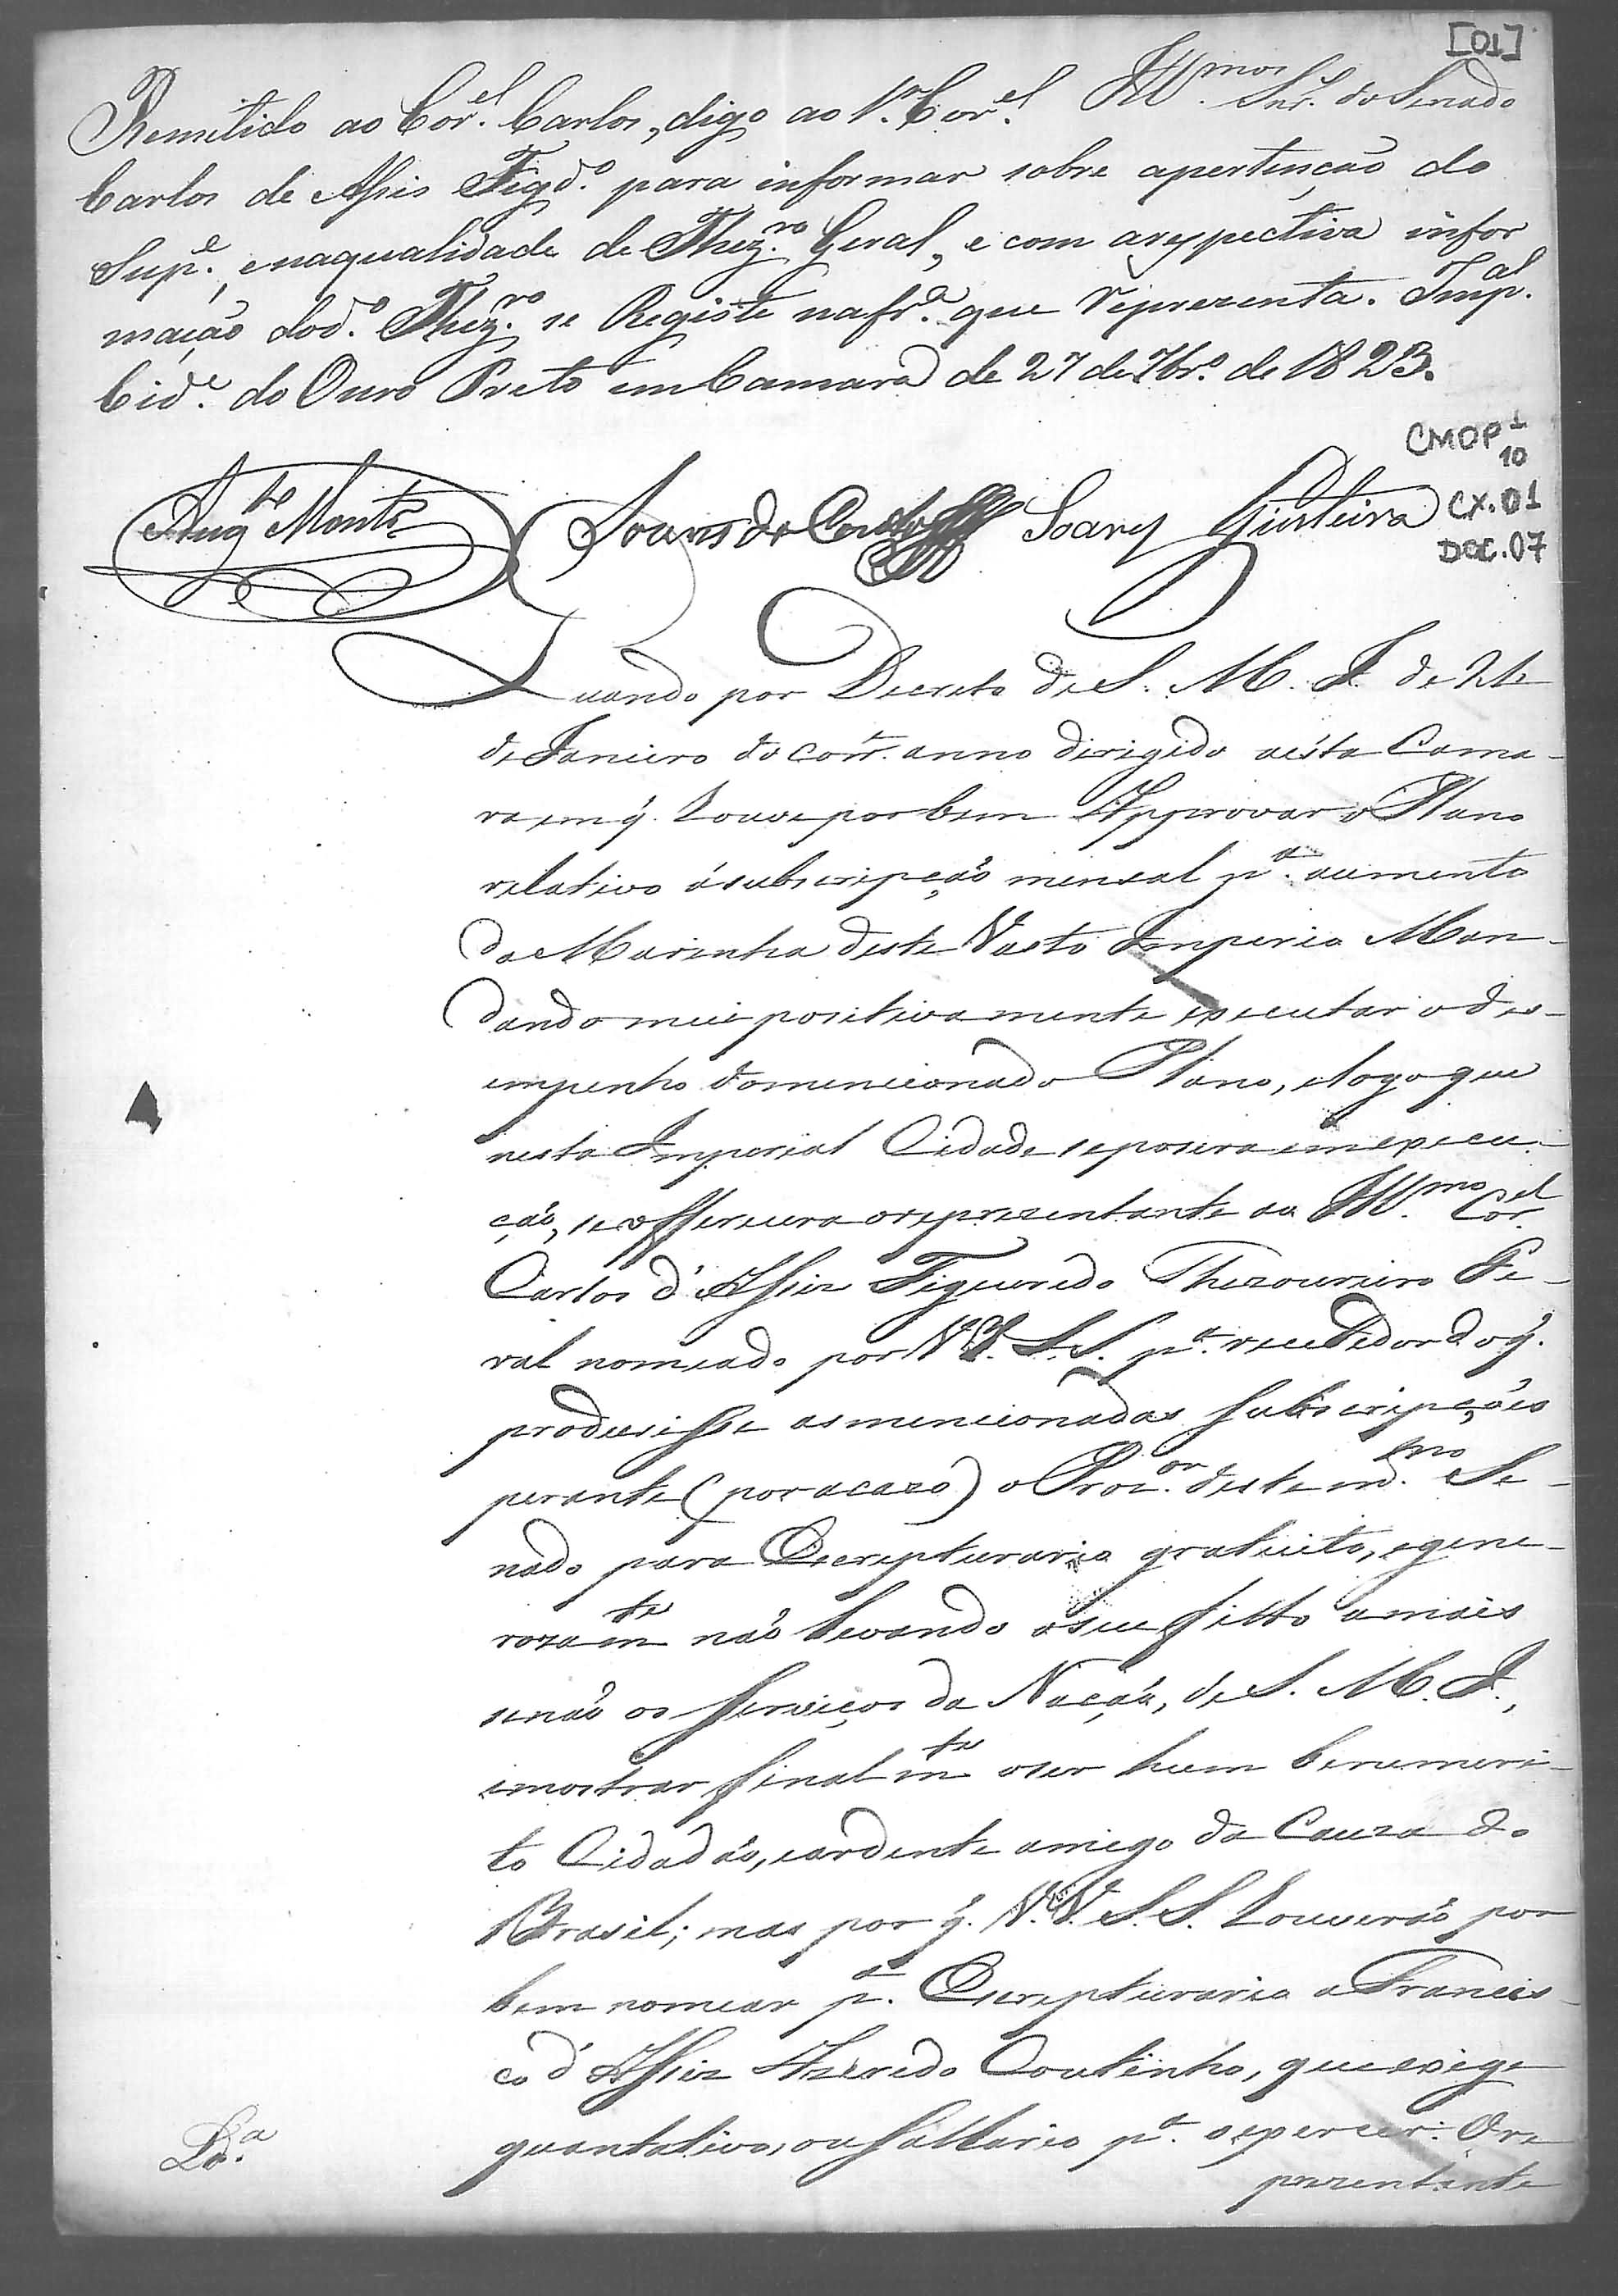 [01]
Remitido ao Cor.el Carlos, digo ao Cor.el Ill.mos Snr.s do Senado
Carlos de Assis Figd.o para informar sobre apertenção do
Sup.e, enaqualidade de Thez.ro Geral, e com arespectiva infor
mação dod.o Thez.ro se Registe nafr.a que Reprezenta. Imp.al
Cid.e do Ouro Preto em Camara de 27 de 7br.o de 1823.
CMOP 1
10
Aug.to Mont.ro Soares do Couto Soares Quinteiro CX.01
DOC.07
Quando por Decreto de S. M. I. de 24
de Janeiro do corr.e anno dirigido aésta Cama-
ra em q̃. Houve por bem Approvar o Plano
relativo ásubscripção mensal p.a aumento
da Marinha deste Vasto Imperio Man-
dando mui positivamente executar o des-
empenho domencionado Plano, elogo que
nesta Imperial Cidade sepozera em execu-
ção, se offerecera oreprezentante ao Ill.mo Cor.el
Carlos d'Assiz Figueredo Thezoureiro Ge-
ral nomeado por V.V. S.S. p.a recebedor do q̃.
produsisse asmencionadas subscripções
perante (por acazo) o Proc.or deste m.mo Se-
nado para Escripturario gratuito, egene-
rozam.te não levando oseu fitto amais
senão os Serviços da Nação, de S. M. I.,
emostrar finalm.te oser hum beneméri-
to Cidadão, eardente amigo da Cauza do
Brasil; mas por q̃. V.V. S.S. Houverão por
bem nomear p.a Escripturario a Francis-
co d'Assiz Azeredo Coutinho, que exige
quantativo, ou Sallario p.a oexpercer: Ore
prezentante
L.da